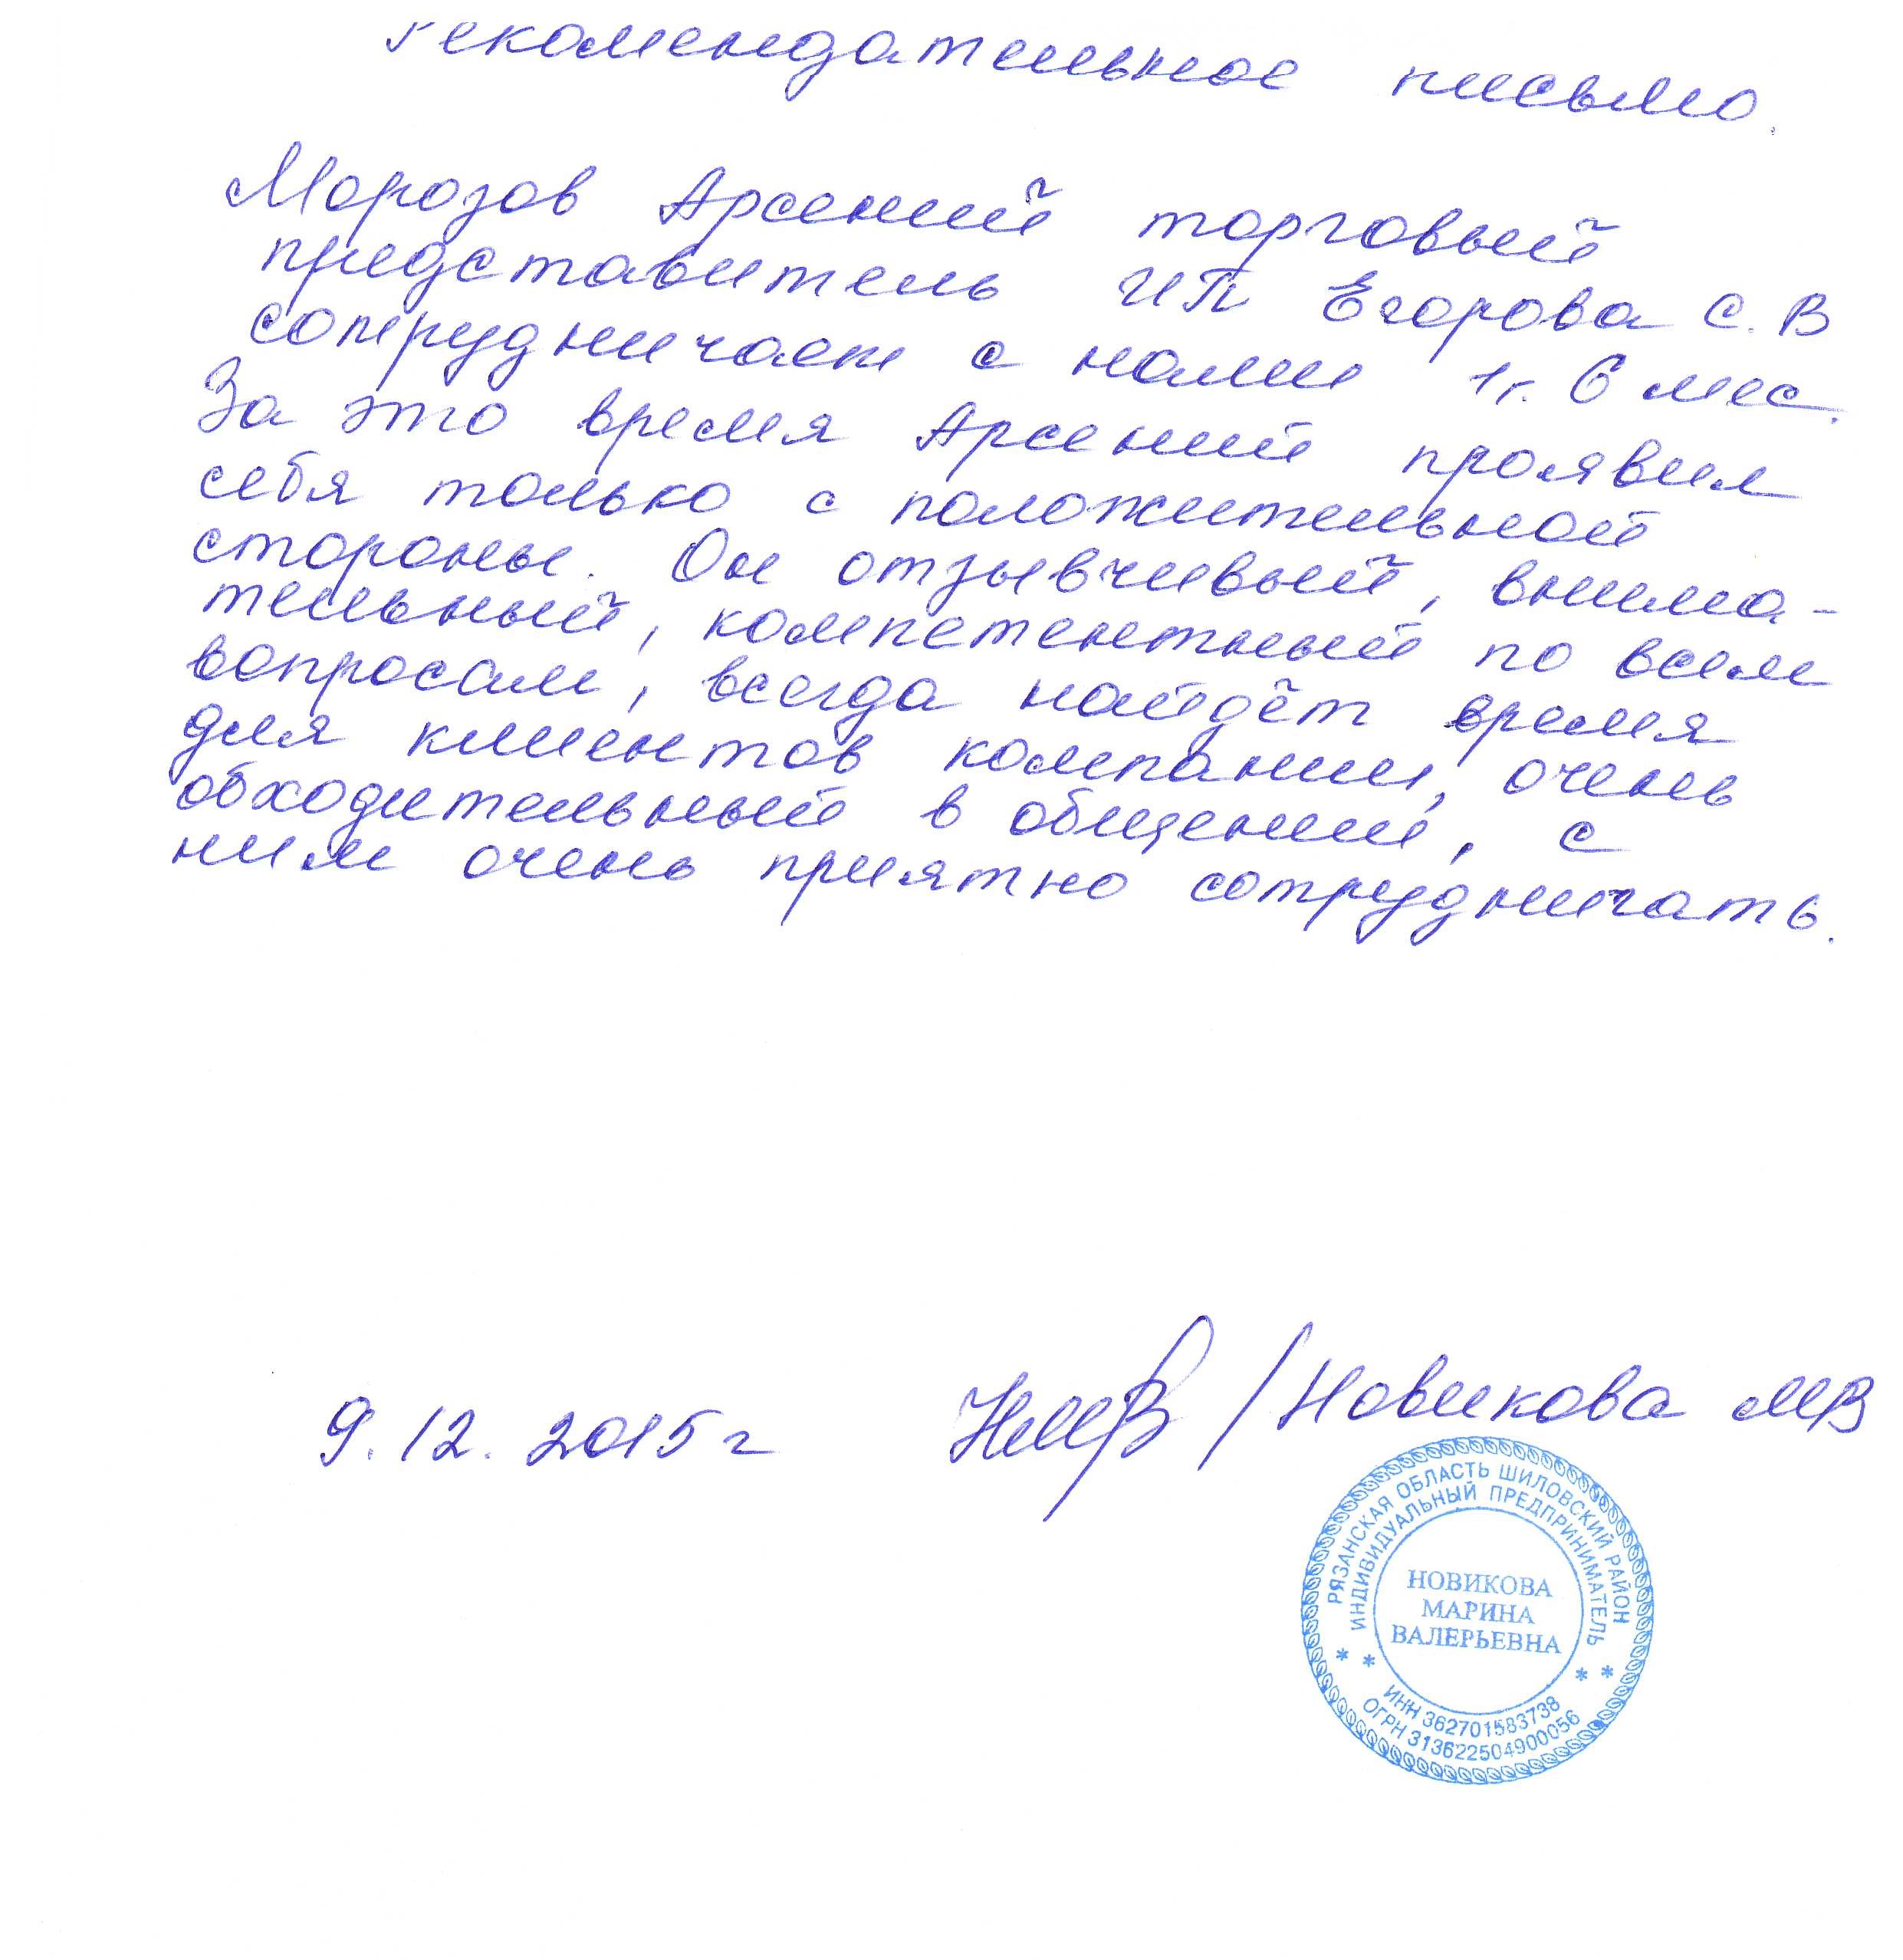 Рекомендательное письмо.
Морозов Арсений торговый
представитель ИП Егорова С. В
сотрудничает с нами 1г. 6 мес.
За это время Арсений проявил
себя только с положительной
стороны. Он отзывчивый, внима-
тельный, компетентный по всем
вопросам, всегда найдёт время
для клиентов компании, очень
обходительный в общении, с
ним очень приятно сотрудничать.
9.12.2015г НМВ /Новикова МВ
РЯЗАНСКАЯ ОБЛАСТЬ ШИЛОВСКИЙ РАЙОН
ИНДИВИДУАЛЬНЫЙ ПРЕДПРИНИМАТЕЛЬ
НОВИКОВА
МАРИНА
ВАЛЕРЬЕВНА
ИНН 362701583738
ОГРН 313622504900056